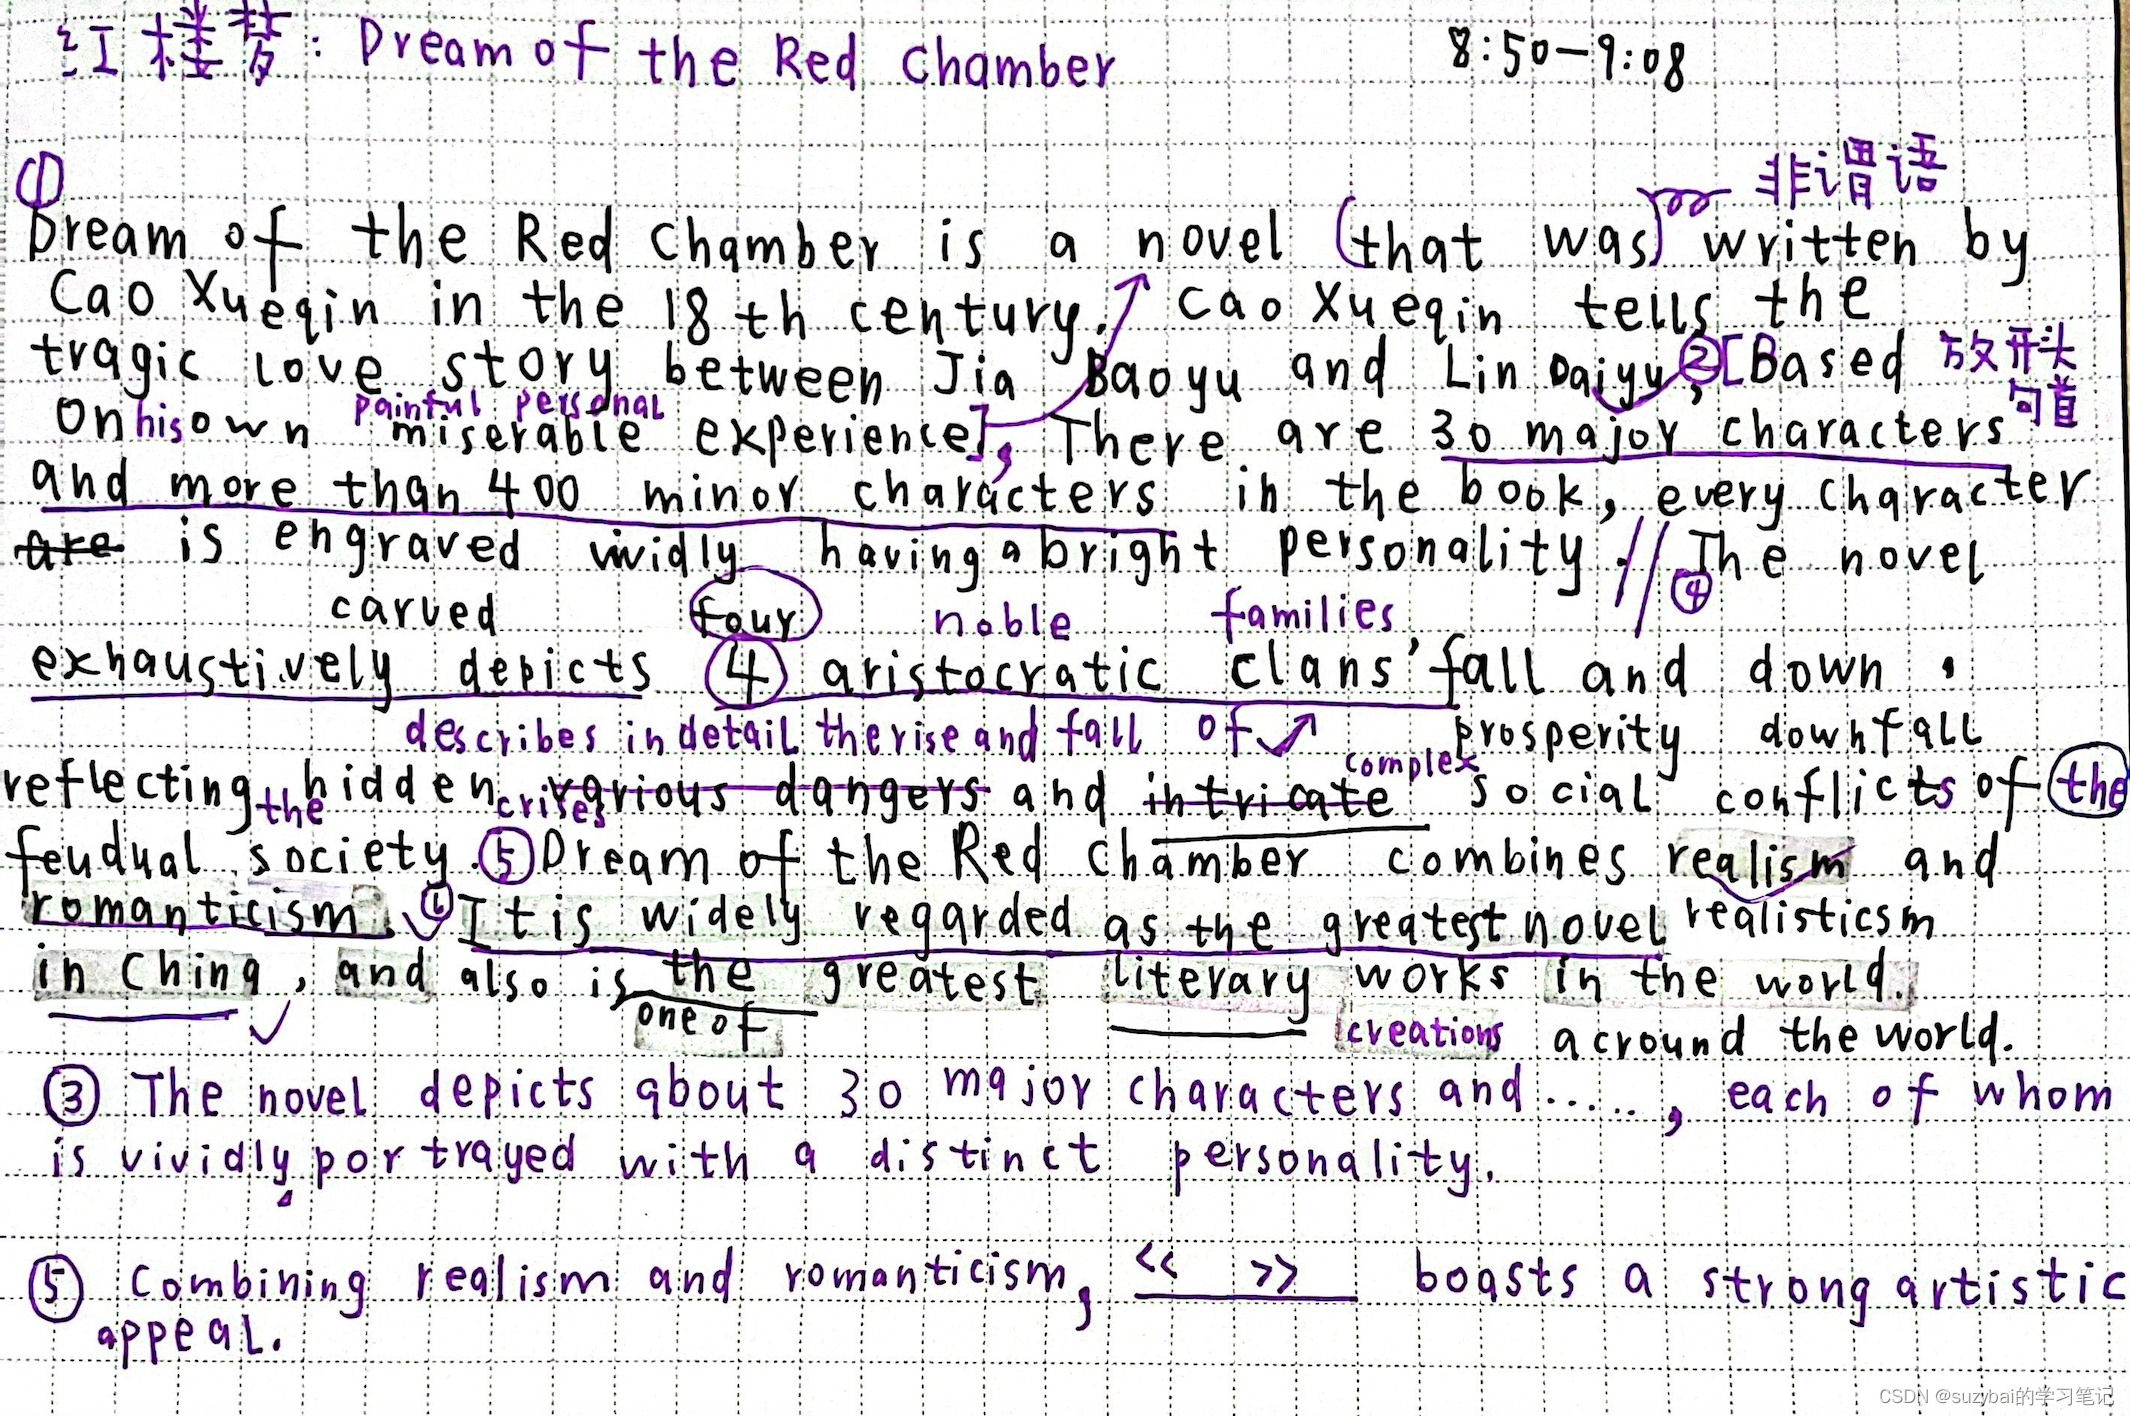 红楼梦: Dream of the Red Chamber 8:50-9:08
① 非谓语
Dream of the Red Chamber is a novel (that was) written by
Cao Xueqin in the 18 th century. Cao Xueqin tells the
tragic love story between Jia Baoyu and Lin Daiyu, ②[Based 放开头
painful personal 句首
on his own miserable experience], There are 30 major characters
and more than 400 minor characters in the book, every character
are is engraved vividly having a bright personality. // ④ The novel
carved four noble families
exhaustively depicts 4 aristocratic clans' fall and down,
describes in detail the rise and fall of prosperity downfall
complex
reflecting the hidden crises various dangers and intricate social conflicts of the
feudual society. ⑤ Dream of the Red Chamber combines realism and
romanticism. ⑥ It is widely regarded as the greatest novel realisticsm
in China, and also is the greatest literary works in the world.
one of creations acround the world.
③ The novel depicts about 30 major characters and ....., each of whom
is vividly portrayed with a distinct personality.
⑤ Combining realism and romanticism, << >> boasts a strong artistic
appeal.
CSDN @suzybai的学习笔记